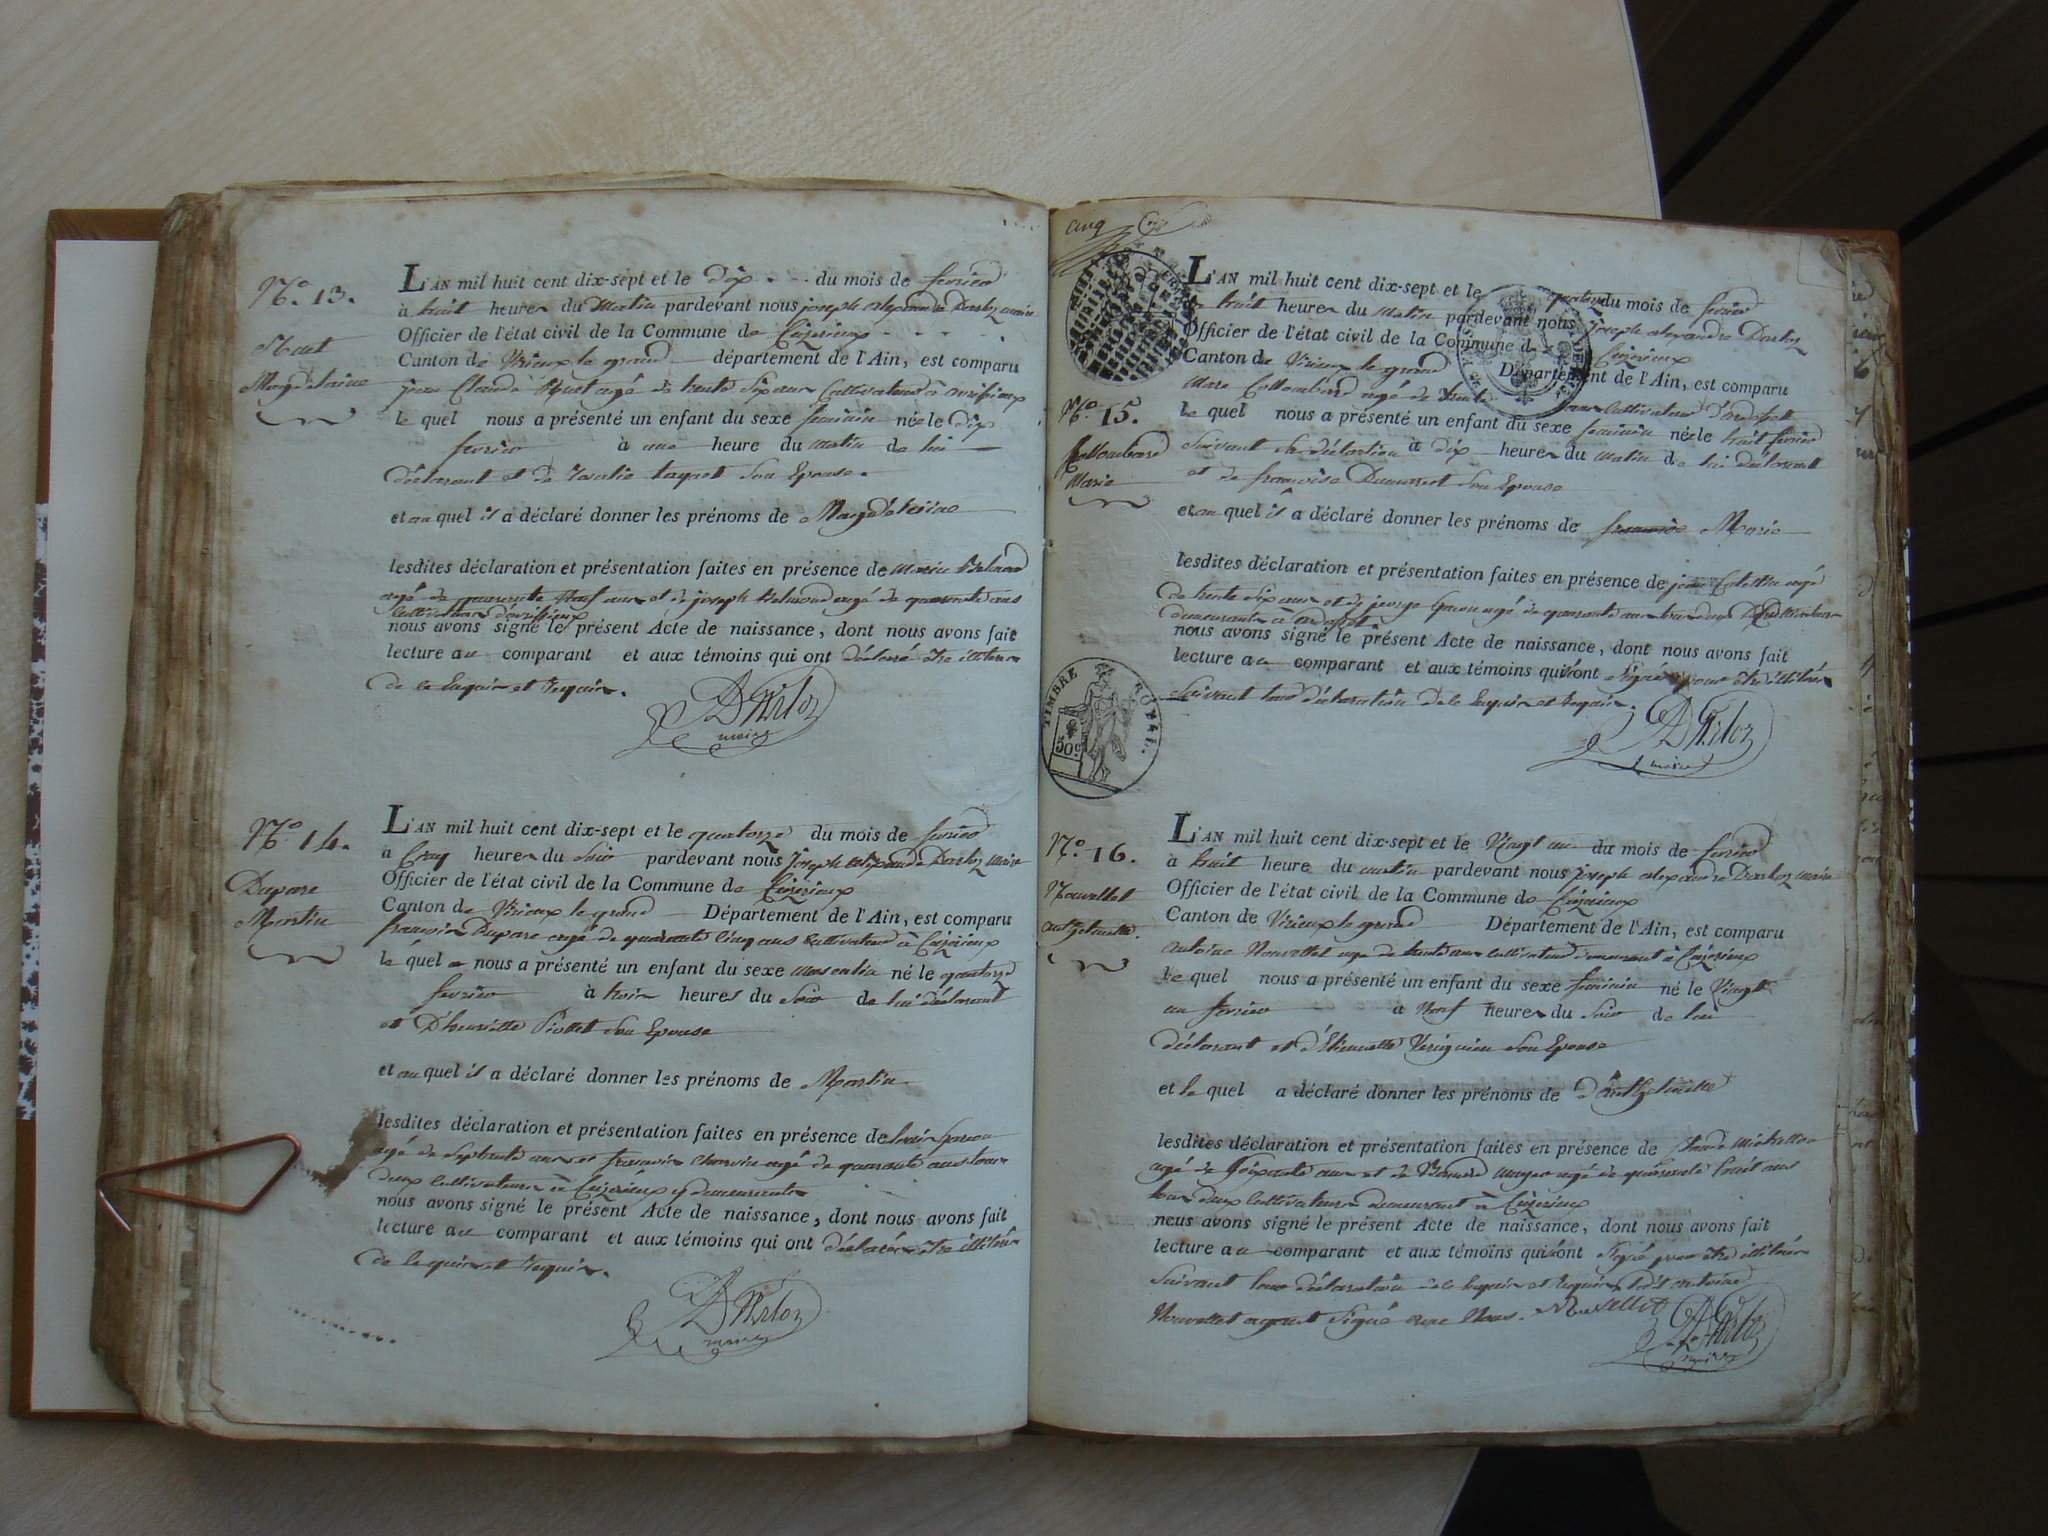 N.º 13.
Magdelaine
L'AN mil huit cent dix-sept et le dix du mois de fevrier
à huit heures du Matin pardevant nous joseph alexandre Darloz maire
Officier de l'état civil de la Commune de Ceyzerieux
Canton de Virieux le grand département de l'Ain, est comparu
jean Claude agé de trente six ans Cultivateur à
le quel nous a présenté un enfant du sexe feminin née le dix
fevrier à une heure du matin de lui
déclarant et de Son Epouse.
et au quel il a déclaré donner les prénoms de Magdeleine
lesdites déclaration et présentation faites en présence de
agé de quarante Neuf ans et de joseph agé de quarante ans
Cultivateurs
nous avons signé le présent Acte de naissance, dont nous avons fait
lecture au comparant et aux témoins qui ont déclaré être illiterés
de ce Enquis et Requis.
DArloz
maire
N.º 14.
Dupare
Martin
L'AN mil huit cent dix-sept et le quatorze du mois de fevrier
à heures du Soir pardevant nous Joseph alexandre Darloz Maire
Officier de l'état civil de la Commune de Ceyzérieux
Canton de Virieux le grand Département de l'Ain, est comparu
francois Dupare agé de quarante Cinq ans Cultivateur à Ceyzerieux
le quel nous a présenté un enfant du sexe masculin né le quatorze
fevrier à trois heures du Soir de lui déclarant
et D'henriette Piollet Son Epouse
et au quel il a déclaré donner les prénoms de Martin
lesdites déclaration et présentation faites en présence de
agé de Septante ans et francois agé de quarante ans tous
deux Cultivateurs à Ceyzérieux y demeurants
nous avons signé le présent Acte de naissance, dont nous avons fait
lecture au comparant et aux témoins qui ont déclarés être illitérés
de ce enquis et Requis.
DArloz
maire
cinq
TIMBRE ROYAL.
50 c
N.º 15.
Collombard
Marie
L'AN mil huit cent dix-sept et le quatorze du mois de fevrier
à huit heures du Matin pardevant nous Joseph alexandre Darloz
Officier de l'état civil de la Commune de Ceyzerieux
Canton de Virieux le grand Département de l'Ain, est comparu
Marc Collombard agé de trente ans Cultivateur
le quel nous a présenté un enfant du sexe feminin née le huit fevrier
Suivant Sa déclaration à dix heures du Matin de lui déclarant
et de francoise Son Epouse
et au quel il a déclaré donner les prénoms de Marie
lesdites déclaration et présentation faites en présence de jean agé
de trente Six ans et de george agé de quarante ans tous deux
demeurants à
nous avons signé le présent Acte de naissance, dont nous avons fait
lecture au comparant et aux témoins qui n'ont Signé pour être illitérés
Suivant leur déclaration de ce Enquis et Requis.
DArloz
maire
N.º 16.
Nouvellet
Anthelmette.
L'AN mil huit cent dix-sept et le Vingt un du mois de fevrier
à huit heure du matin pardevant nous joseph alexandre Darloz maire
Officier de l'état civil de la Commune de Ceyzerieux
Canton de Virieux le grand Département de l'Ain, est comparu
antoine Nouvellet agé de trente ans Cultivateur demeurant à Ceyzerieux
le quel nous a présenté un enfant du sexe feminin né le Vingt
un fevrier à Neuf heures du Soir de lui
déclarant et d'Etiennette Son Epouse
et le quel a déclaré donner les prénoms de d'Anthelmette
lesdites déclaration et présentation faites en présence de
agé de Soixante ans et de agé de quarante huit ans
tous deux Cultivateurs demeurant à Ceyzerieux
nous avons signé le présent Acte de naissance, dont nous avons fait
lecture au comparant et aux témoins qui n'ont Signé pour être illitérés
Suivant leur déclaration de ce Enquis et Requis antoine
Nouvellet ayant Signé avec Nous. Nouvellet
DArloz
maire